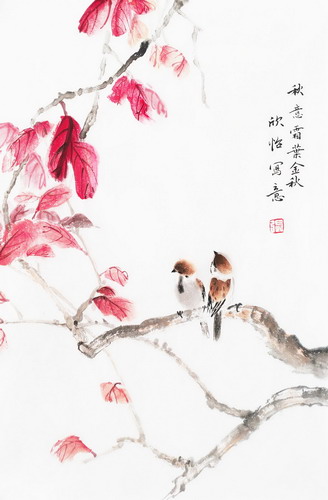 秋意霜葉金秋
欣怡寫意